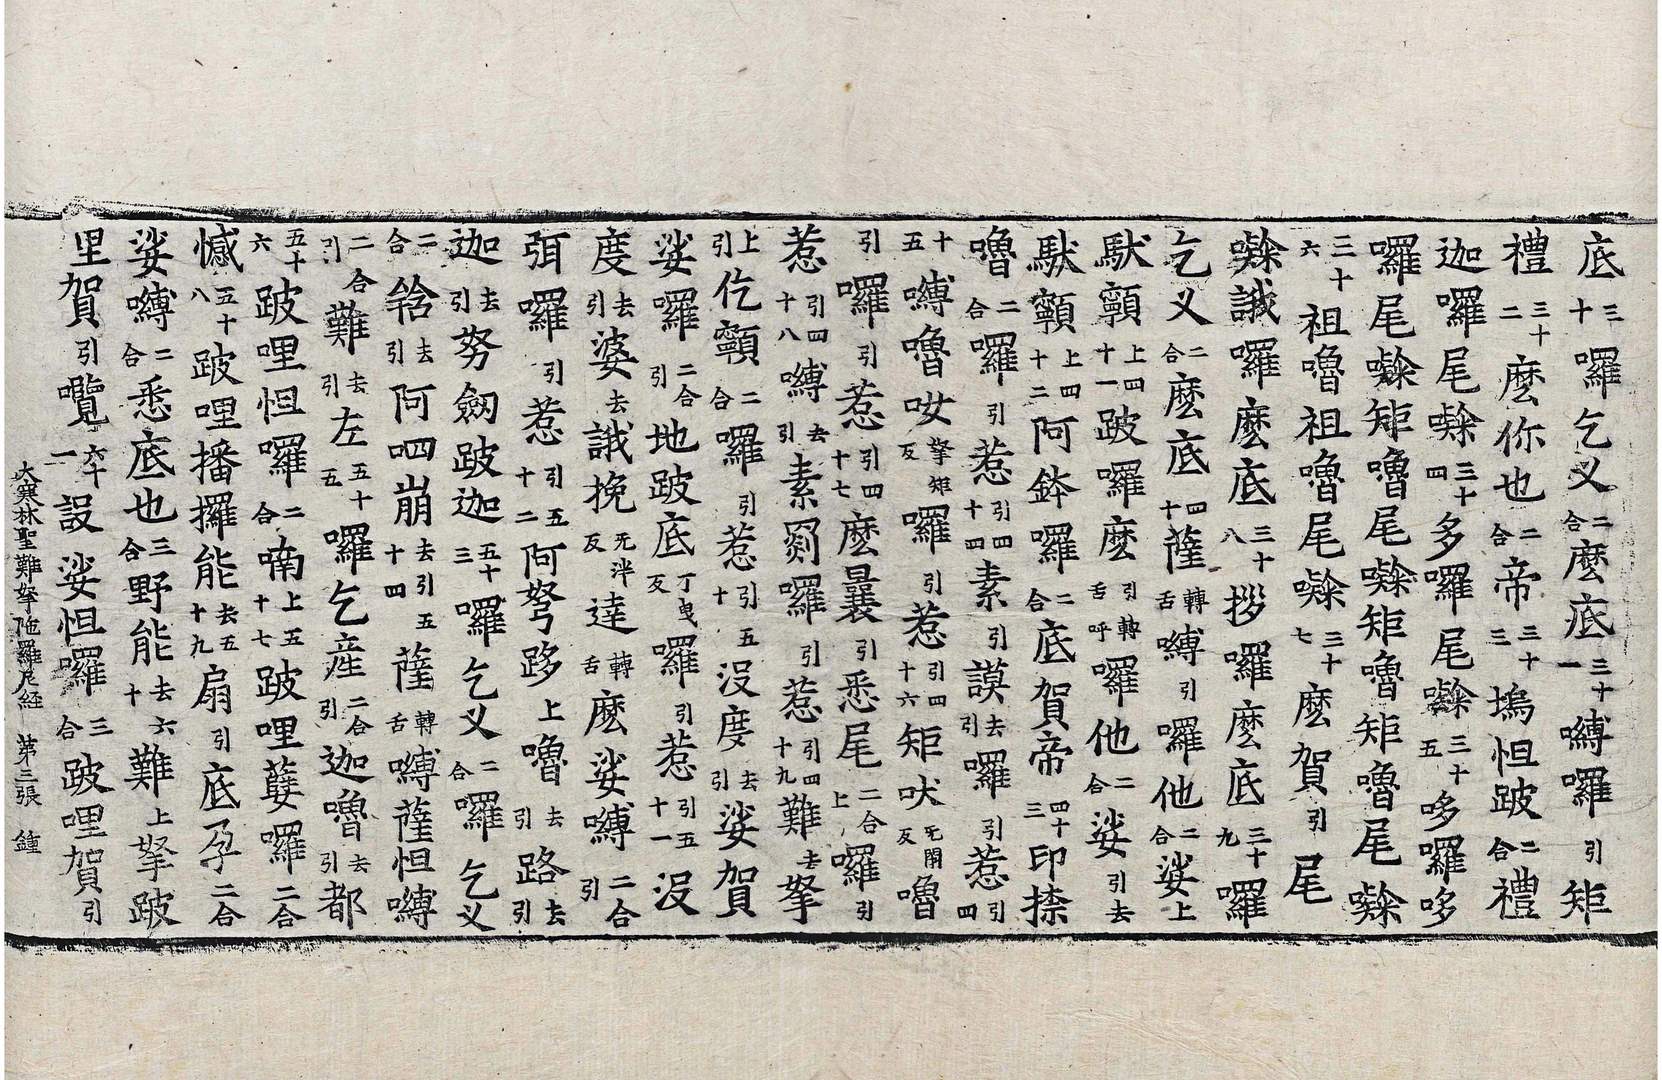 底三十囉乞叉二合麽底三十一嚩囉引矩
禮三十二麽你也二合帝三十三塢怛跛二合禮
迦囉尾㘑三十四多囉尾㘑三十五哆囉哆
囉尾㘑矩嚕尾㘑矩嚕矩嚕尾㘑
三十六祖嚕祖嚕尾㘑三十七麽賀引尾
㘑誐囉麽底三十八拶囉麽底三十九囉
乞叉二合麽底四十薩轉舌嚩引囉他二合娑上
馱顙上四十一跛囉麽引轉舌呼囉他二合娑引去
馱顙上四十二阿鉢囉二合底賀帝四十三印捺
嚕二合囉引惹引四十四素引謨去引囉引惹引四
十五嚩嚕㚢拏矩反囉引惹引四十六矩吠无閉反嚕
引囉引惹引四十七麽曩引悉尾二合上囉引
惹引四十八嚩去引素囉引惹引四十九難去拏
上引仡顙二合囉引惹引五十沒度去引娑賀
娑囉二合引地跛底丁曳反囉引惹引五十一沒
度去引婆去誐挽无泮反達轉舌麽娑嚩二合引
弭囉引惹引五十二阿弩跢上嚕去引路去引
迦去引努劔跛迦五十三囉乞叉二合囉乞叉
二合𤚥去引阿呬崩去引五十四薩轉舌嚩薩怛嚩
二合引難去引左五十五囉乞産二合引迦嚕去引都
五十六跛哩怛囉二合喃上五十七跛哩孽囉二合
憾五十八跛哩播攞能去五十九扇引底孕二合
娑嚩二合悉底也三合野能去六十難上拏跛
里賀引囕六十一設娑怛囉三合跛哩賀引
大寒林聖難拏陁羅尼経 第三張 鐘